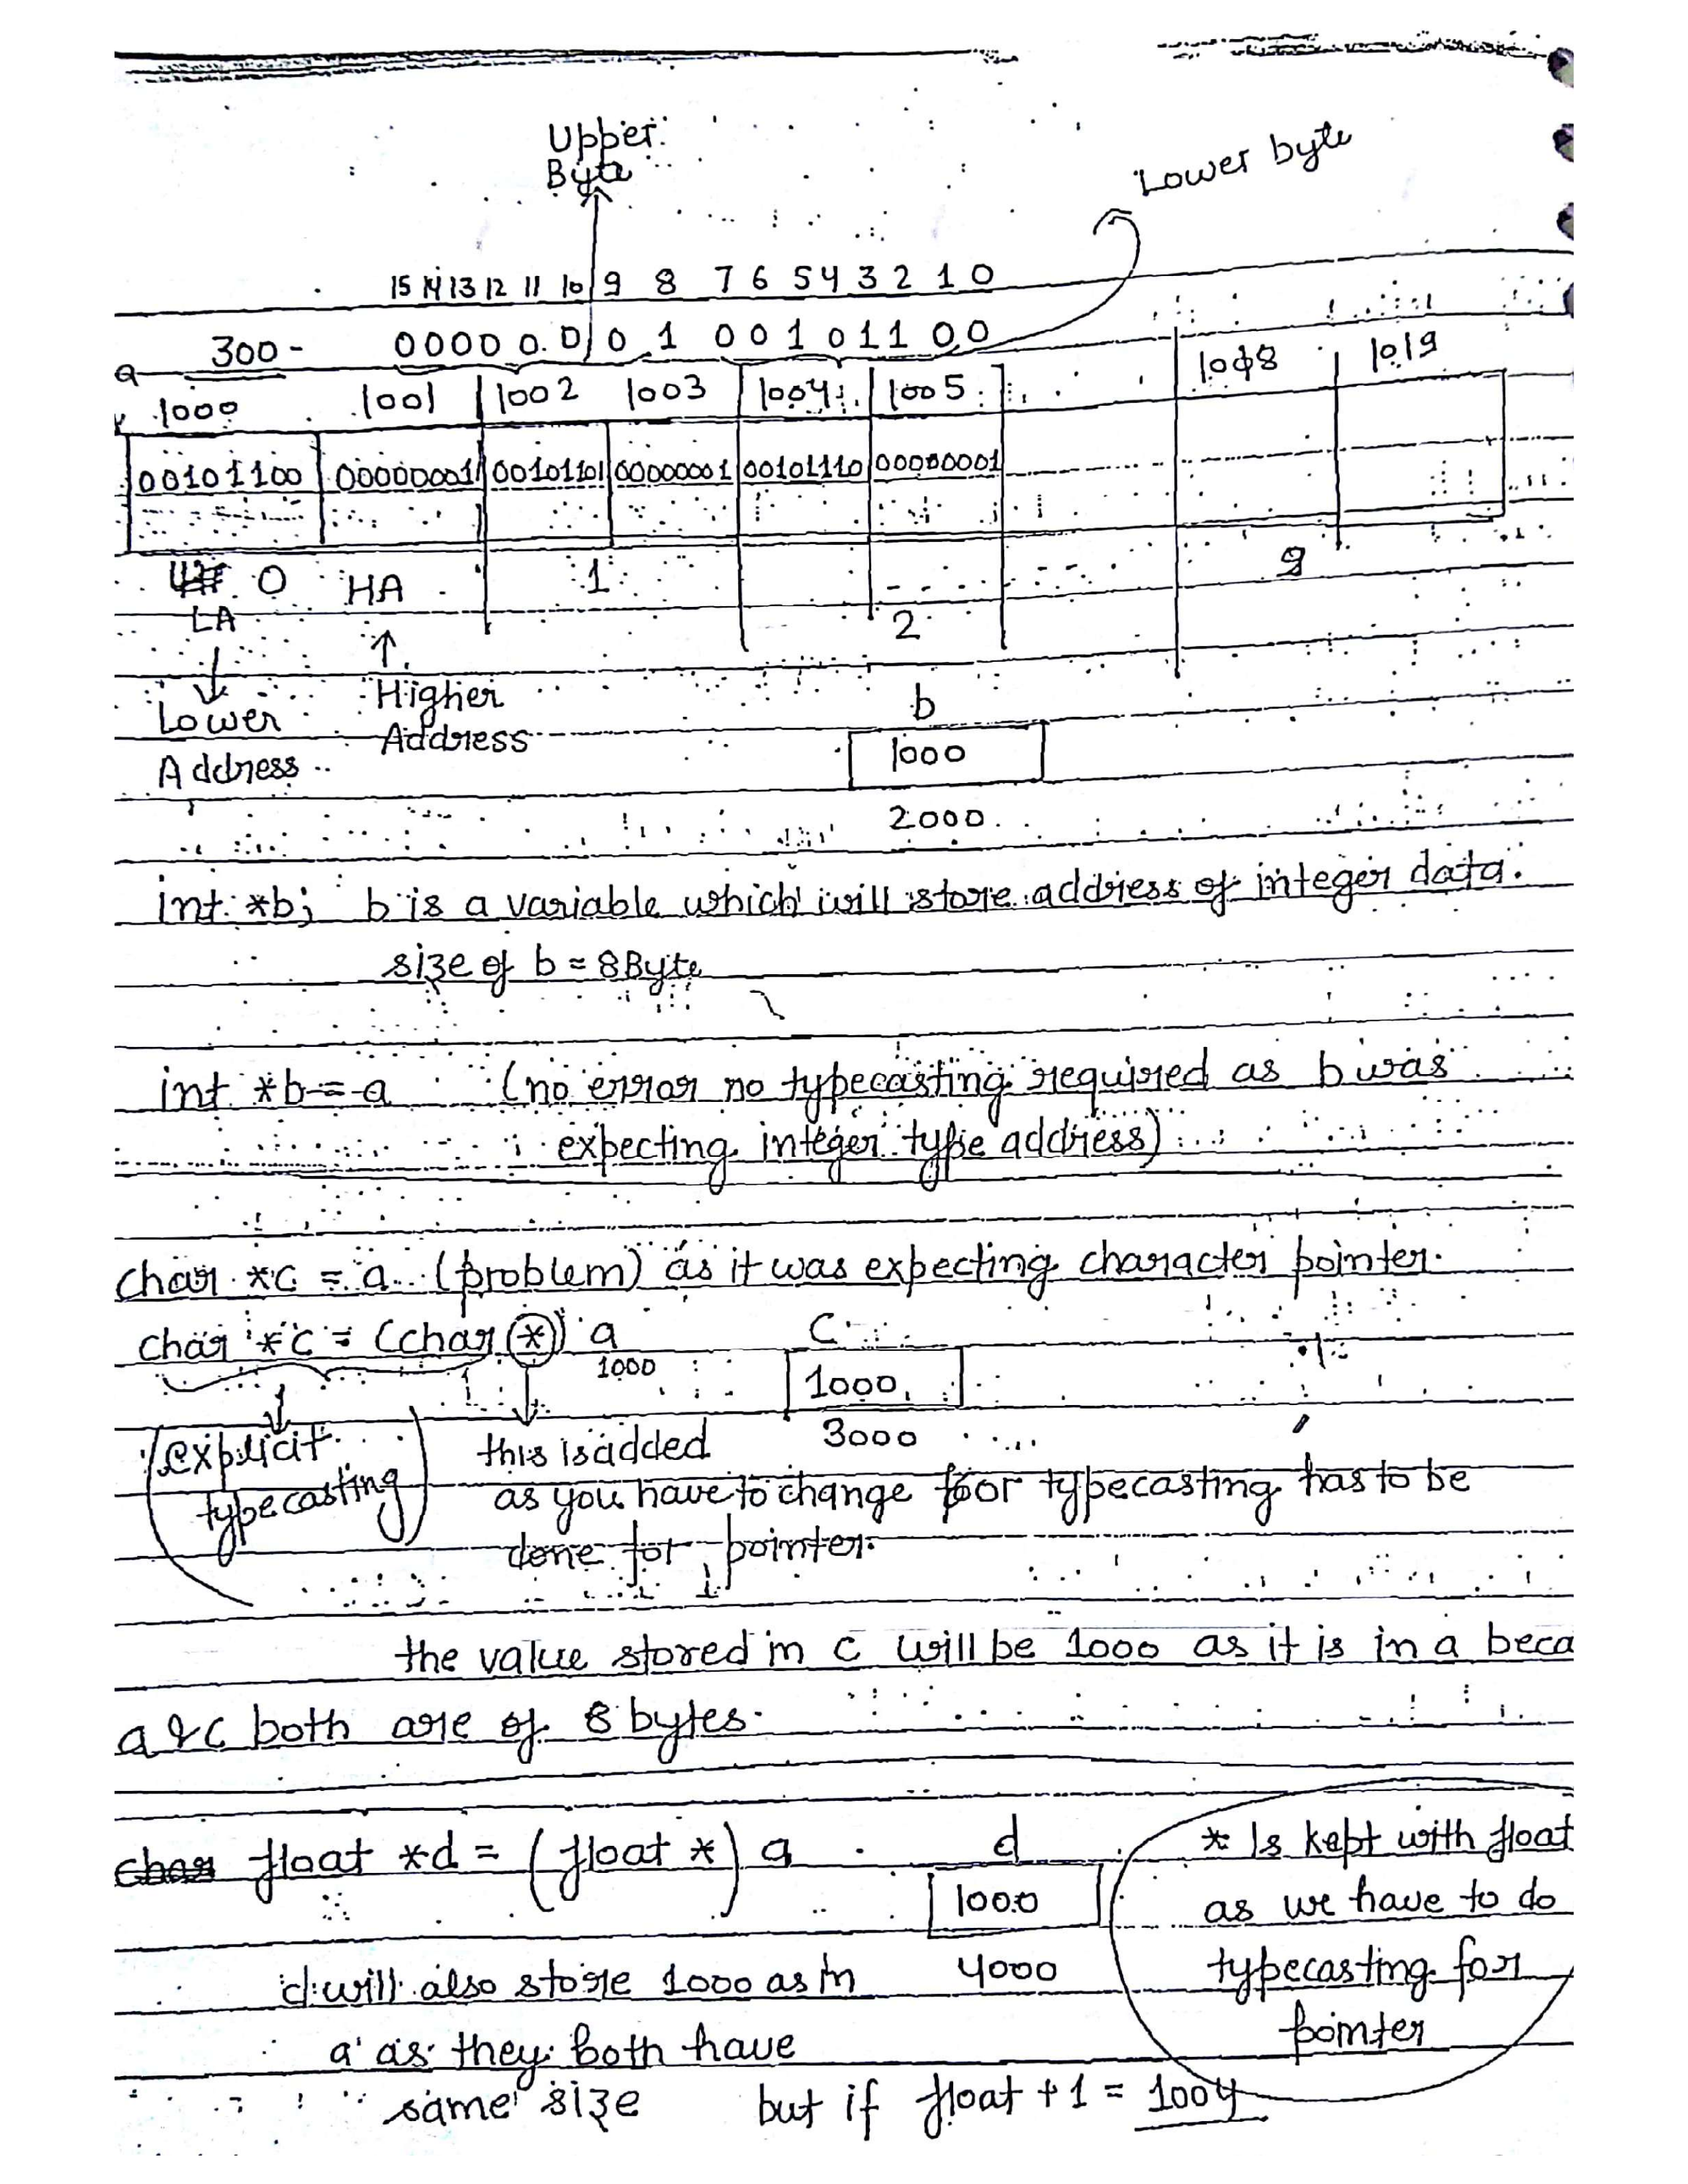 Upper
Byte
Lower byte
15 14 13 12 11 10 9 8 7 6 5 4 3 2 1 0
300 - 0 0 0 0 0 0 0 1 0 0 1 0 1 1 0 0
a
1000 1001 1002 1003 1004 1005 1018 1019
00101100 00000001 00101101 00000001 00101110 00000001
0 HA 1 2 9
LA
Lower Address
Higher Address
b
1000
2000
int *b; b is a variable which will store address of integer data.
size of b = 8 Byte
int *b = a (no error no typecasting required as b was
expecting integer type address)
char *c = a (problem) as it was expecting character pointer.
char *c = (char *) a C
1000 1000
3000
explicit typecasting
this is added
as you have to change for typecasting has to be
done for pointer.
the value stored in c will be 1000 as it is in a beca
a & c both are of 8 bytes.
char float *d = (float *) a d
1000
4000
* Is kept with float
as we have to do
typecasting for
pointer
d will also store 1000 as in
a as they both have
same size but if float + 1 = 1004